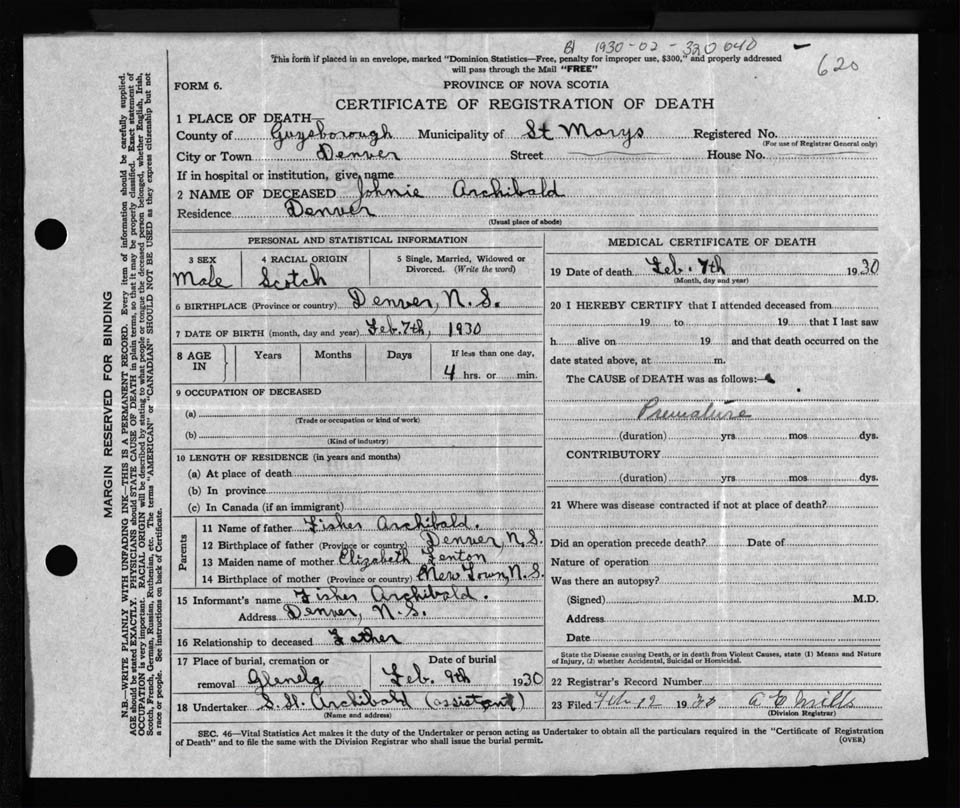 B 1930-02-320040
620
This form if placed in an envelope, marked "Dominion Statistics—Free, penalty for improper use, $300," and properly addressed
will pass through the Mail "FREE"
FORM 6.
PROVINCE OF NOVA SCOTIA
CERTIFICATE OF REGISTRATION OF DEATH
1 PLACE OF DEATH
County of Guysborough Municipality of St Marys Registered No.
(For use of Registrar General only)
City or Town Denver Street House No.
If in hospital or institution, give name
2 NAME OF DECEASED Johnie Archibald
Residence Denver
(Usual place of abode)
PERSONAL AND STATISTICAL INFORMATION
3 SEX 4 RACIAL ORIGIN 5 Single, Married, Widowed or Divorced. (Write the word)
Male Scotch
6 BIRTHPLACE (Province or country) Denver, N.S.
7 DATE OF BIRTH (month, day and year) Feb. 7th, 1930
8 AGE IN Years Months Days If less than one day,
4 hrs. or min.
9 OCCUPATION OF DECEASED
(a)
(Trade or occupation or kind of work)
(b)
(Kind of industry)
10 LENGTH OF RESIDENCE (in years and months)
(a) At place of death
(b) In province
(c) In Canada (if an immigrant)
Parents
11 Name of father Fisher Archibald.
12 Birthplace of father (Province or country) Denver, N.S.
13 Maiden name of mother Elizabeth Fenton
14 Birthplace of mother (Province or country) New Town, N.S.
15 Informant's name Fisher Archibald.
Address Denver, N.S.
16 Relationship to deceased Father
17 Place of burial, cremation or Date of burial
removal Glenelg Feb. 9th 1930
18 Undertaker S. H. Archibald (assistant)
(Name and address)
MEDICAL CERTIFICATE OF DEATH
19 Date of death Feb. 7th 1930
(Month, day and year)
20 I HEREBY CERTIFY that I attended deceased from
19 to 19 that I last saw
h alive on 19 and that death occurred on the
date stated above, at m.
The CAUSE of DEATH was as follows:—
Premature
(duration) yrs mos dys.
CONTRIBUTORY
(duration) yrs mos dys.
21 Where was disease contracted if not at place of death?
Did an operation precede death? Date of
Nature of operation
Was there an autopsy?
(Signed) M.D.
Address
Date
State the Disease causing Death, or in death from Violent Causes, state (1) Means and Nature
of Injury, (2) whether Accidental, Suicidal or Homicidal.
22 Registrar's Record Number
23 Filed Feb 12 1930 A E Mills
(Division Registrar)
SEC. 46—Vital Statistics Act makes it the duty of the Undertaker or person acting as Undertaker to obtain all the particulars required in the "Certificate of Registration
of Death" and to file the same with the Division Registrar who shall issue the burial permit.
(OVER)
MARGIN RESERVED FOR BINDING
N.B.—WRITE PLAINLY WITH UNFADING INK—THIS IS A PERMANENT RECORD. Every item of information should be carefully supplied.
AGE should be stated EXACTLY. PHYSICIANS should STATE CAUSE OF DEATH in plain terms, so that it may be properly classified. Exact statement of
OCCUPATION is very important. RACIAL ORIGIN will be described by stating to what people or tongue the deceased person belonged, whether English, Irish,
Scotch, French, German, Russian, Ruthenian, etc. The terms "AMERICAN" or "CANADIAN" SHOULD NOT BE USED as they express citizenship but not
a race or people. See instructions on back of Certificate.